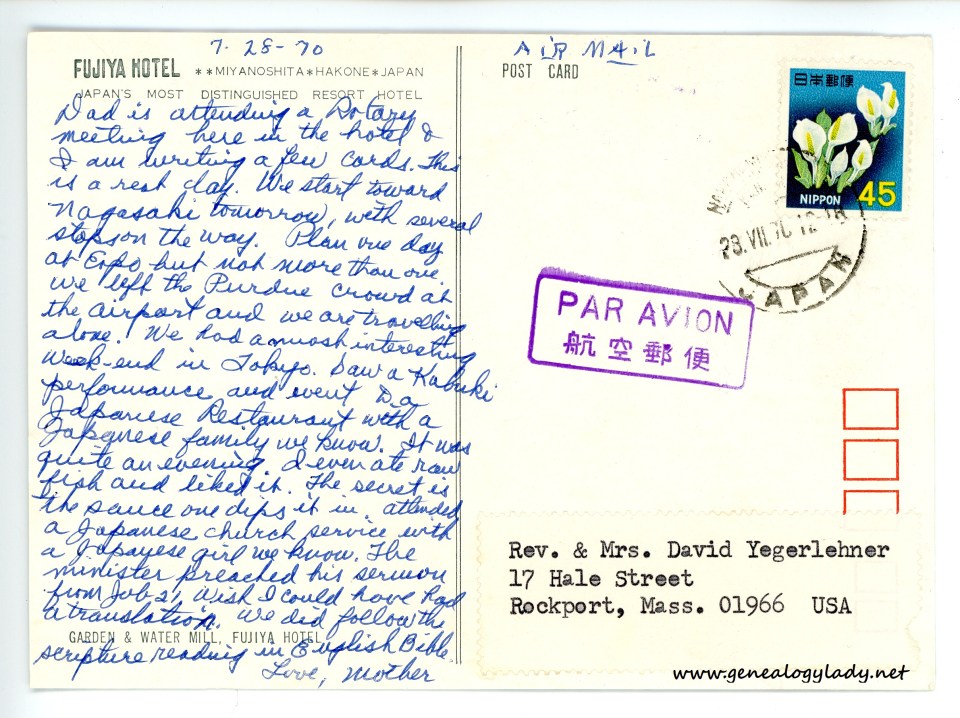 7-28-70
FUJIYA HOTEL **MIYANOSHITA*HAKONE*JAPAN
JAPAN'S MOST DISTINGUISHED RESORT HOTEL
Dad is attending a Rotary
meeting here in the hotel &
I am writing a few cards. This
is a rest day. We start toward
Nagasaki tomorrow, with several
stops on the way. Plan one day
at Expo but not more than one.
We left the Purdue crowd at
the airport and we are travelling
alone. We had a most interesting
week-end in Tokyo. Saw a Kabuki
performance and went to a
Japanese Restaurant with a
Japanese family we know. It was
quite an evening. I even ate raw
fish and liked it. The secret is
the sauce one dips it in. Attended
a Japanese church service with
a Japanese girl we know. The
minister preached his sermon
from Job 21, wish I could have had
a translation. We did follow the
GARDEN & WATER MILL, FUJIYA HOTEL
scripture reading in English Bible.
Love, Mother
AIR MAIL
POST CARD
日本郵便
NIPPON 45
JAPAN
PAR AVION
航空郵便
Rev. & Mrs. David Yegerlehner
17 Hale Street
Rockport, Mass. 01966 USA
www.genealogylady.net